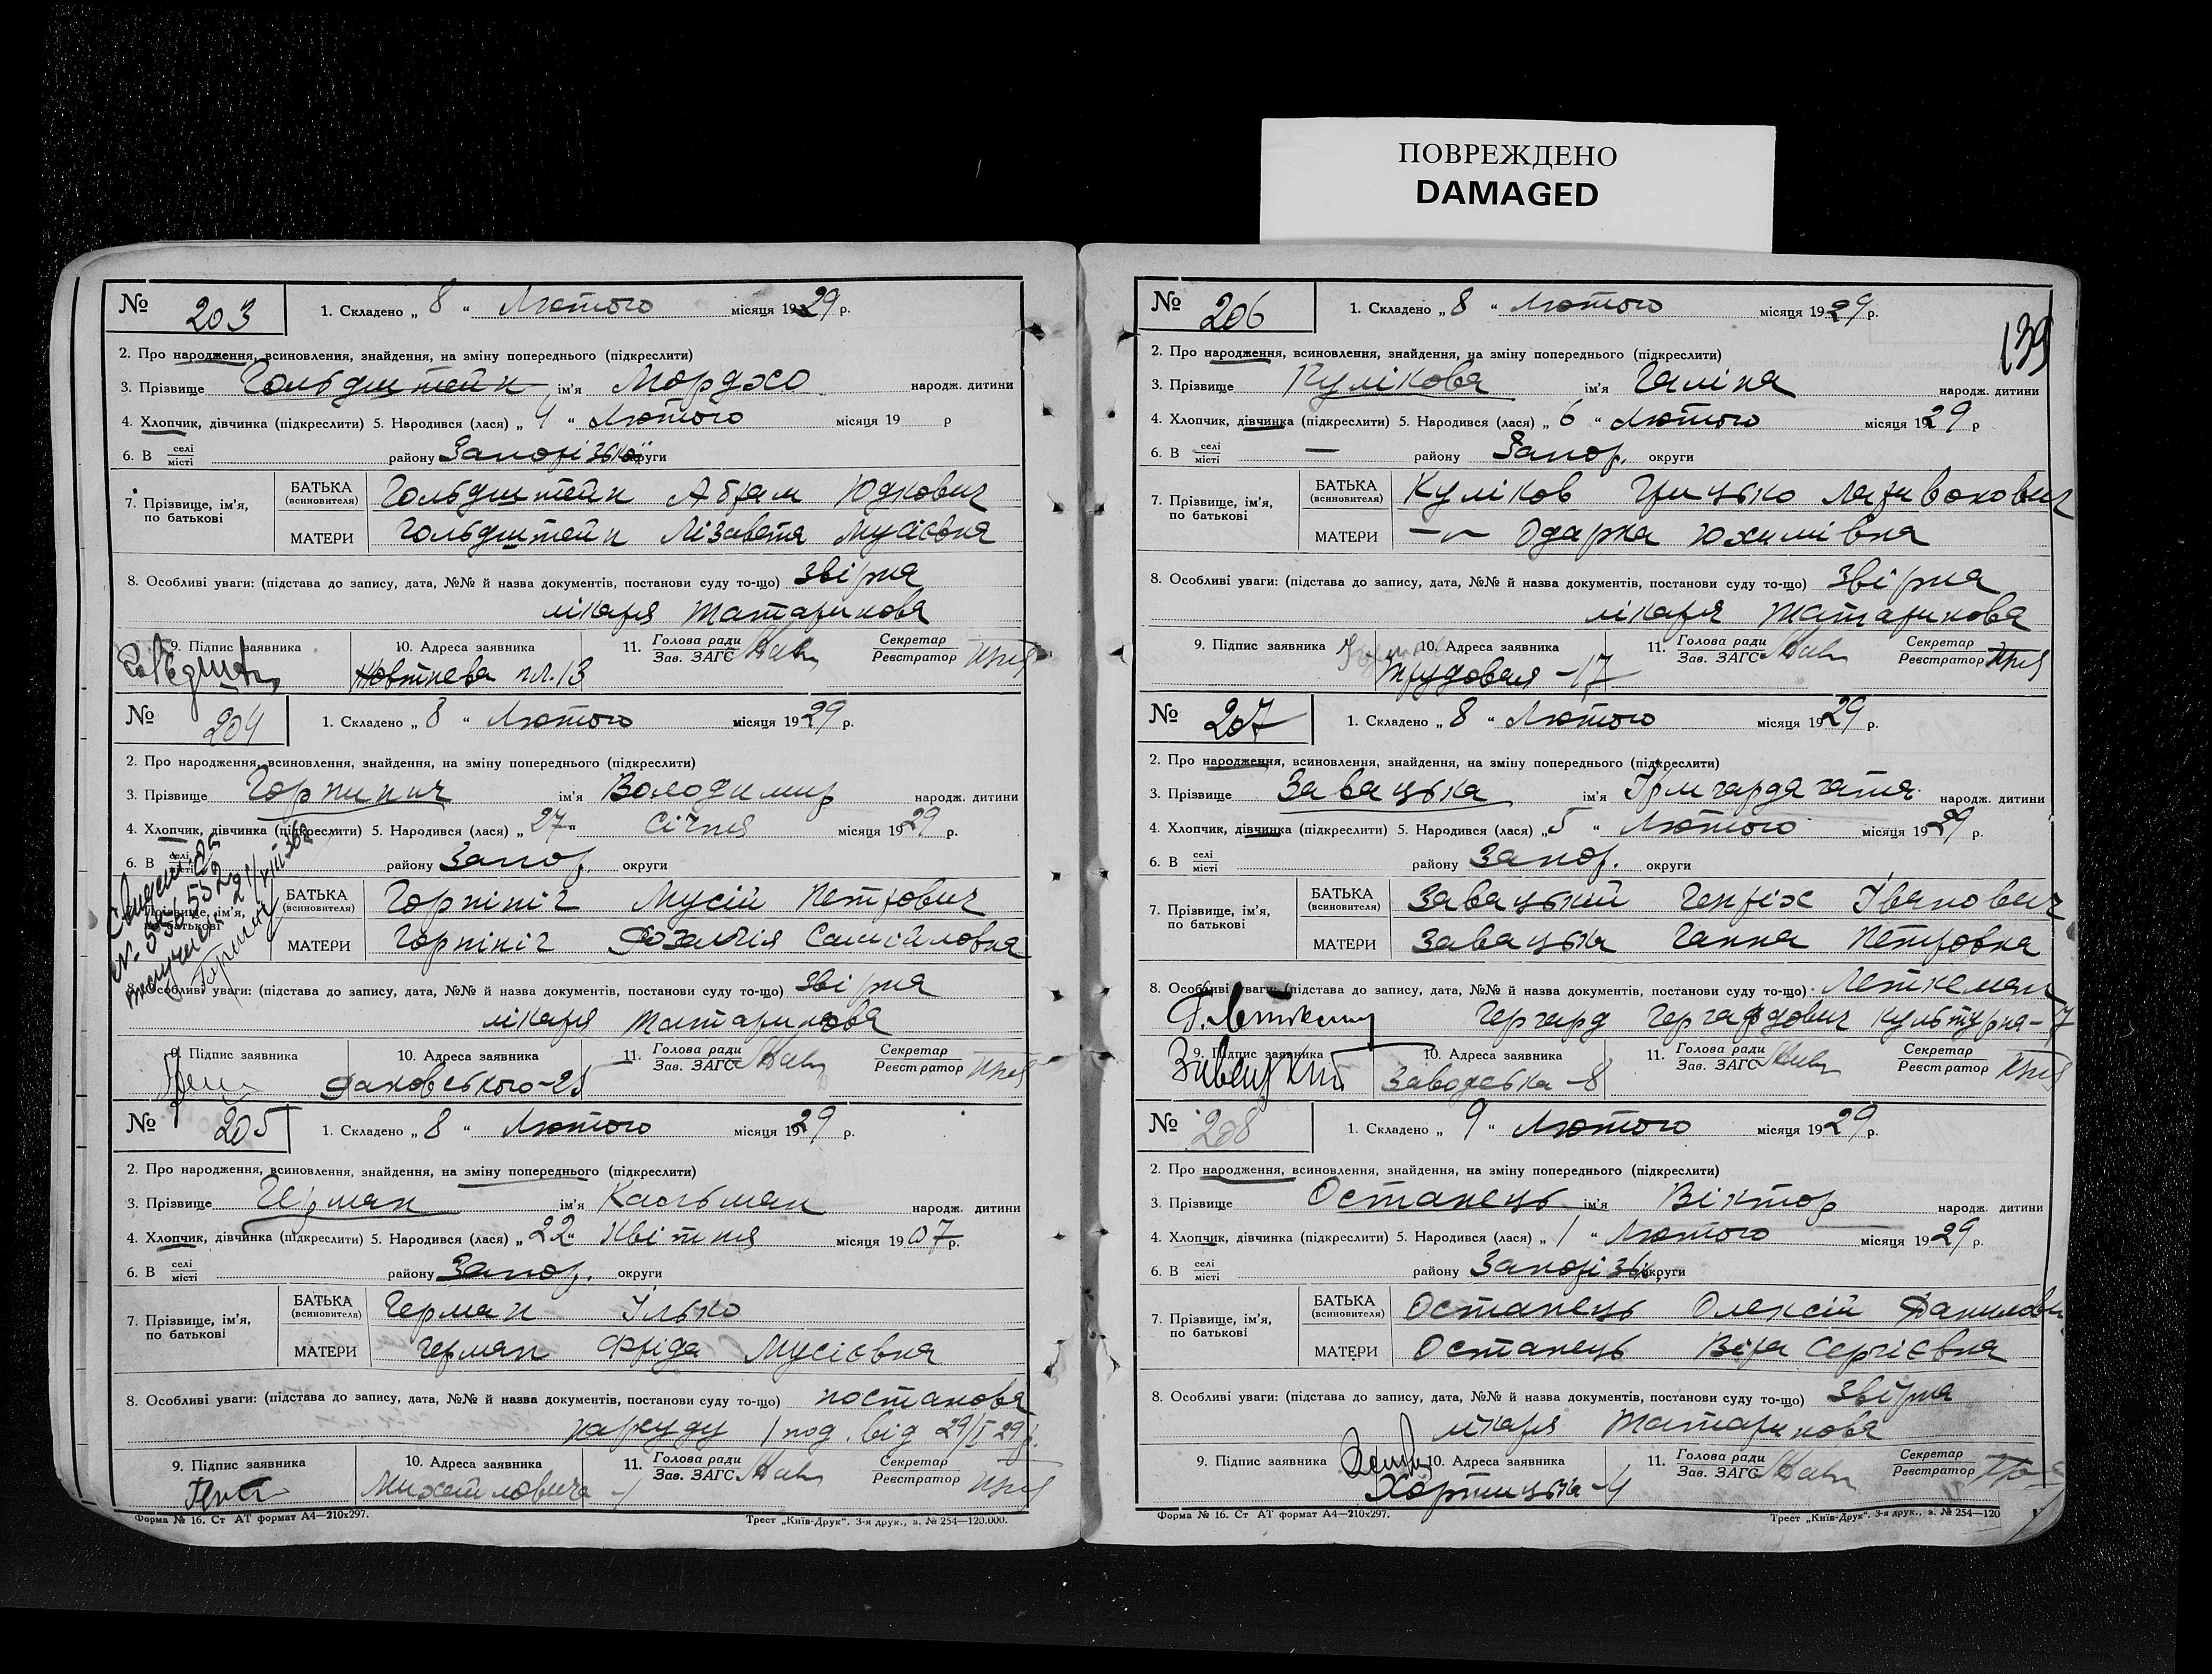 ПОВРЕЖДЕНО
DAMAGED
№ 203
1. Складено „ 8 “ Лютого місяця 1929 р.
2. Про народження, всиновлення, знайдення, на зміну попереднього (підкреслити)
3. Прізвище Гольдштейн ім'я Мордхо народж. дитини
4. Хлопчик, дівчинка (підкреслити) 5. Народився (лася) „ 4 “ Лютого місяця 19 р
6. В селі місті району Запорізької округи
7. Прізвище, ім'я, по батькові
БАТЬКА (всиновителя) Гольдштейн Абрам Юдкович
МАТЕРИ Гольдштейн Лізавета Мусієвна
8. Особливі уваги: (підстава до запису, дата, №№ й назва документів, постанови суду то-що) звірка
лікаря Татаринова
9. Підпис заявника 10. Адреса заявника 11. Голова ради Зав. ЗАГС Секретар Реєстратор
Жовтнева пл. 13
№ 204
1. Складено „ 8 “ Лютого місяця 1929 р.
2. Про народження, всиновлення, знайдення, на зміну попереднього (підкреслити)
3. Прізвище Горпинич ім'я Володимир народж. дитини
4. Хлопчик, дівчинка (підкреслити) 5. Народився (лася) „ 27 “ Січня місяця 1929 р.
6. В селі місті району Запор. округи
7. Прізвище, ім'я, по батькові
БАТЬКА (всиновителя) Горпініч Мусій Петрович
МАТЕРИ Горпініч Самійловна
8. Особливі уваги: (підстава до запису, дата, №№ й назва документів, постанови суду то-що) звірка
лікаря Татаринова
9. Підпис заявника 10. Адреса заявника 11. Голова ради Зав. ЗАГС Секретар Реєстратор
№ 205
1. Складено „ 8 “ Лютого місяця 1929 р.
2. Про народження, всиновлення, знайдення, на зміну попереднього (підкреслити)
3. Прізвище Герман ім'я Кальман народж. дитини
4. Хлопчик, дівчинка (підкреслити) 5. Народився (лася) „ 22 “ Квітня місяця 1907 р.
6. В селі місті району Запор. округи
7. Прізвище, ім'я, по батькові
БАТЬКА (всиновителя) Герман Ілько
МАТЕРИ Герман Фріда Мусієвна
8. Особливі уваги: (підстава до запису, дата, №№ й назва документів, постанови суду то-що) постанова
нарсуду 1 від 29/I 29р.
9. Підпис заявника 10. Адреса заявника 11. Голова ради Зав. ЗАГС Секретар Реєстратор
Михайловича
Форма № 16. Ст АТ формат А4—210х297. Трест „Київ-Друк“. 3-я друк., з. № 254—120.000.
139
№ 206
1. Складено „ 8 “ Лютого місяця 1929 р.
2. Про народження, всиновлення, знайдення, на зміну попереднього (підкреслити)
3. Прізвище Кулікова ім'я Галіна народж. дитини
4. Хлопчик, дівчинка (підкреслити) 5. Народився (лася) „ 6 “ Лютого місяця 1929 р
6. В селі місті — району Запор. округи
7. Прізвище, ім'я, по батькові
БАТЬКА (всиновителя) Куліков Грицько
МАТЕРИ —〃— Одарка Юхимівна
8. Особливі уваги: (підстава до запису, дата, №№ й назва документів, постанови суду то-що) звірка
лікаря Татаринова
9. Підпис заявника 10. Адреса заявника 11. Голова ради Зав. ЗАГС Секретар Реєстратор
Трудовая – 17
№ 207
1. Складено „ 8 “ Лютого місяця 1929 р.
2. Про народження, всиновлення, знайдення, на зміну попереднього (підкреслити)
3. Прізвище Завацька ім'я Ірмгарда народж. дитини
4. Хлопчик, дівчинка (підкреслити) 5. Народився (лася) „ 5 “ Лютого місяця 1929 р.
6. В селі місті району Запор. округи
7. Прізвище, ім'я, по батькові
БАТЬКА (всиновителя) Завацький Генріх Іванович
МАТЕРИ Завацька Ганна Петровна
8. Особливі уваги: (підстава до запису, дата, №№ й назва документів, постанови суду то-що) Леткеман
Гергард Гергардович культурна – 7
9. Підпис заявника 10. Адреса заявника 11. Голова ради Зав. ЗАГС Секретар Реєстратор
Завацкий Заводська – 8
№ 208
1. Складено „ 9 “ Лютого місяця 1929 р.
2. Про народження, всиновлення, знайдення, на зміну попереднього (підкреслити)
3. Прізвище Останець ім'я Віктор народж. дитини
4. Хлопчик, дівчинка (підкреслити) 5. Народився (лася) „ 1 “ Лютого місяця 1929 р.
6. В селі місті району Запорізьк. округи
7. Прізвище, ім'я, по батькові
БАТЬКА (всиновителя) Останець Олексій Данилович
МАТЕРИ Останець Віра Сергієвна
8. Особливі уваги: (підстава до запису, дата, №№ й назва документів, постанови суду то-що) звірка
лікаря Татаринова
9. Підпис заявника 10. Адреса заявника 11. Голова ради Зав. ЗАГС Секретар Реєстратор
Хортицька – 4
Форма № 16. Ст АТ формат А4—210х297. Трест „Київ-Друк“. 3-я друк., з. № 254—120